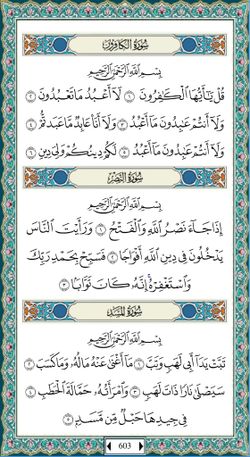 سُورَةُ الكَافِرُونَ
بِسْمِ اللَّهِ الرَّحْمَٰنِ الرَّحِيمِ
قُلْ يَٰٓأَيُّهَا ٱلْكَٰفِرُونَ ١ لَآ أَعْبُدُ مَا تَعْبُدُونَ ٢
وَلَآ أَنتُمْ عَٰبِدُونَ مَآ أَعْبُدُ ٣ وَلَآ أَنَا۠ عَابِدٌ مَّا عَبَدتُّمْ ٤
وَلَآ أَنتُمْ عَٰبِدُونَ مَآ أَعْبُدُ ٥ لَكُمْ دِينُكُمْ وَلِيَ دِينِ ٦
سُورَةُ النَّصْرِ
بِسْمِ اللَّهِ الرَّحْمَٰنِ الرَّحِيمِ
إِذَا جَآءَ نَصْرُ ٱللَّهِ وَٱلْفَتْحُ ١ وَرَأَيْتَ ٱلنَّاسَ
يَدْخُلُونَ فِي دِينِ ٱللَّهِ أَفْوَاجًا ٢ فَسَبِّحْ بِحَمْدِ رَبِّكَ
وَٱسْتَغْفِرْهُ إِنَّهُۥ كَانَ تَوَّابًۢا ٣
سُورَةُ المَسَدِ
بِسْمِ اللَّهِ الرَّحْمَٰنِ الرَّحِيمِ
تَبَّتْ يَدَآ أَبِي لَهَبٍ وَتَبَّ ١ مَآ أَغْنَىٰ عَنْهُ مَالُهُۥ وَمَا كَسَبَ ٢
سَيَصْلَىٰ نَارًا ذَاتَ لَهَبٍ ٣ وَٱمْرَأَتُهُۥ حَمَّالَةَ ٱلْحَطَبِ ٤
فِي جِيدِهَا حَبْلٌ مِّن مَّسَدٍۭ ٥
603